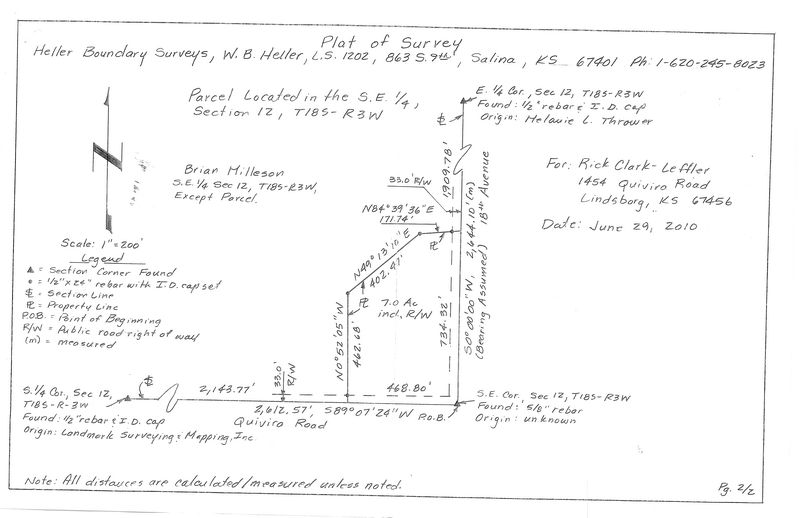 Plat of Survey
Heller Boundary Surveys, W.B. Heller, L.S. 1202, 863 S. 9th, Salina, KS 67401 Ph: 1-620-245-8023
Parcel Located in the S.E. 1/4,
Section 12, T18S-R3W
E. 1/4 Cor., Sec 12, T18S-R3W
Found: 1/2" rebar & I.D. cap
Origin: Melanie L. Thrower
Brian Milleson
S.E. 1/4 Sec 12, T18S-R3W,
Except Parcel.
For: Rick Clark-Leffler
1454 Quivira Road
Lindsborg, KS 67456
Date: June 29, 2010
N
Scale: 1"=200'
Legend
▲ = Section Corner Found
• = 1/2"x24" rebar with I.D. cap set
℄ = Section Line
⅊ = Property Line
P.O.B. = Point of Beginning
R/W = Public road right of way
(m) = measured
℄
1,909.78'
33.0' R/W
N84°39'36"E
171.74'
⅊
S0°00'00"W, 2,644.10'(m) 18th Avenue
(Bearing Assumed)
N49°13'10"E
402.47'
⅊
7.0 Ac
incl. R/W
N0°52'05"W
462.68'
734.32'
S. 1/4 Cor., Sec 12,
T18S-R-3W
Found: 1/2" rebar & I.D. cap
Origin: Landmark Surveying & Mapping, Inc.
℄
2,143.77'
33.0'
R/W
468.80'
2,612.57' S89°07'24"W P.O.B.
Quivira Road
S.E. Cor, Sec 12, T18S-R3W
Found: 5/8" rebar
Origin: unknown
Note: All distances are calculated/measured unless noted.
Pg. 2/2